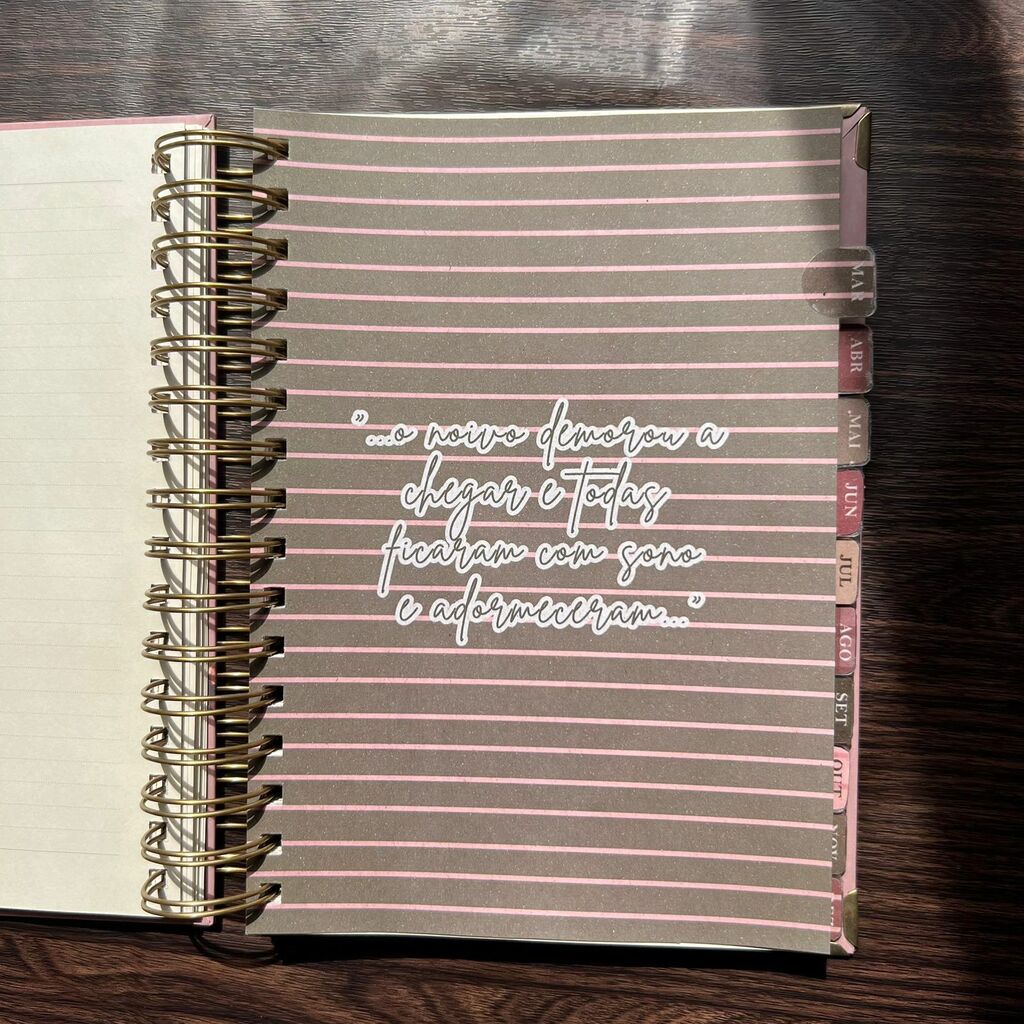 "...o noivo demorou a
chegar e todas
ficaram com sono
e adormeceram..."
MAR
ABR
MAI
JUN
JUL
AGO
SET
OUT
NOV